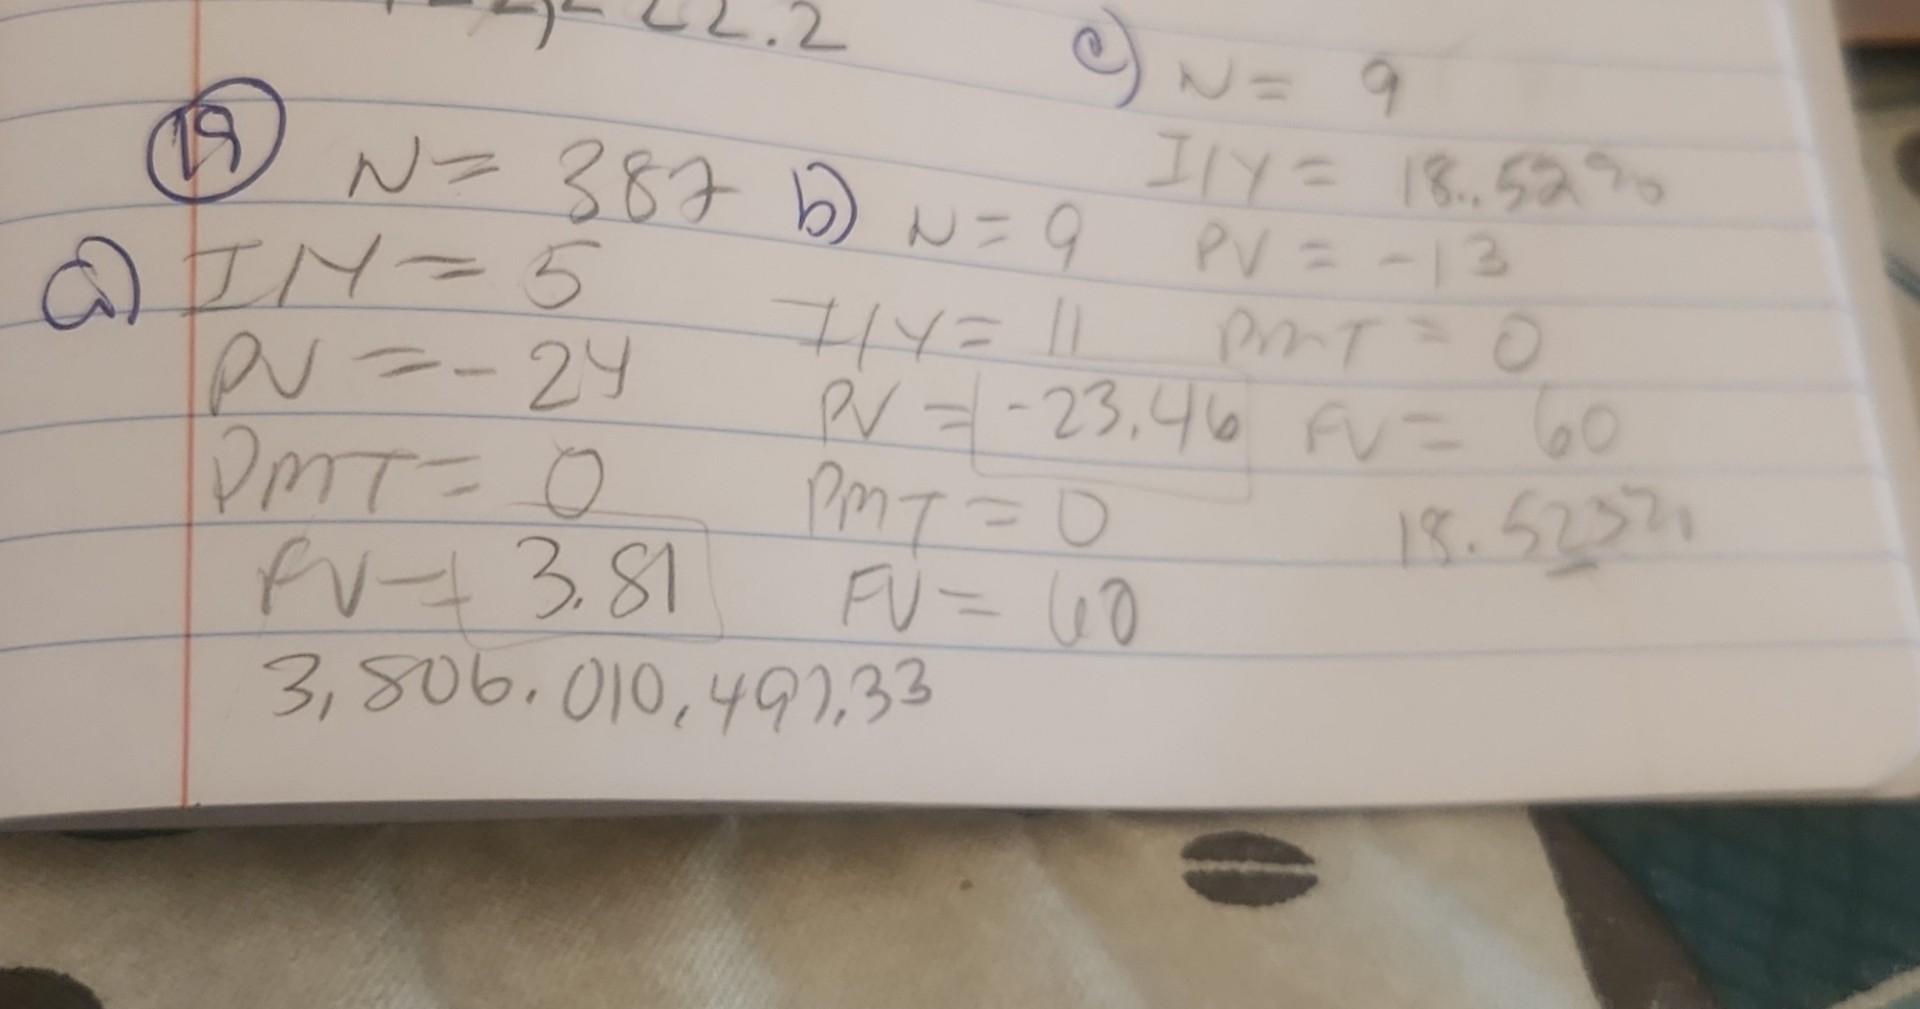 22.2
19
N = 387
a) I/Y = 5
PV = -24
PMT = 0
FV = 3.81
3,806.010,497.33
b) N = 9
I/Y = 11
PV = -23.46
PMT = 0
FV = 60
c) N = 9
I/Y = 18.52%
PV = -13
PMT = 0
FV = 60